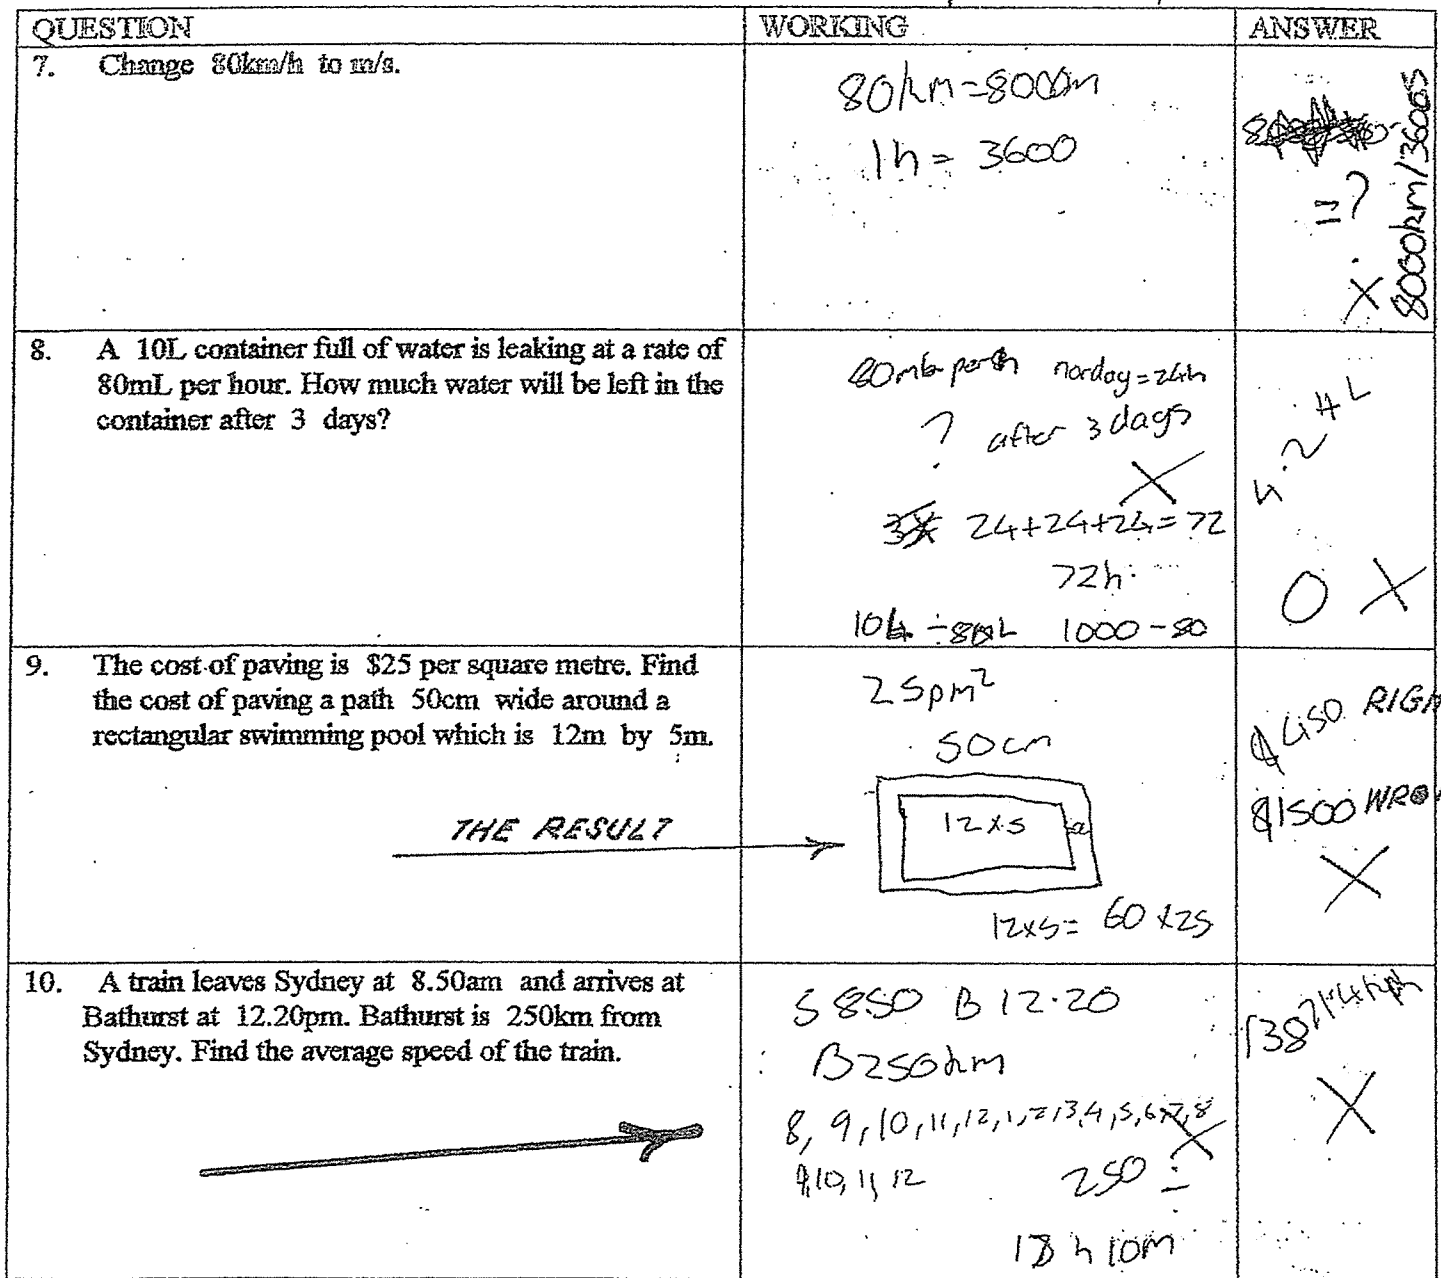 QUESTION WORKING ANSWER
7. Change 80km/h to m/s.
80km=8000m
1h = 3600
8000km/3600s
=?
X
8. A 10L container full of water is leaking at a rate of
80mL per hour. How much water will be left in the
container after 3 days?
80mL per h norday=24h
? after 3 days
X
24+24+24=72
72h
10L ÷80mL 1000-80
4.24L
0 X
9. The cost of paving is $25 per square metre. Find
the cost of paving a path 50cm wide around a
rectangular swimming pool which is 12m by 5m.
THE RESULT
25pm²
50cm
12x5
12x5= 60x25
$450 RIGH
$1500 WRO
X
10. A train leaves Sydney at 8.50am and arrives at
Bathurst at 12.20pm. Bathurst is 250km from
Sydney. Find the average speed of the train.
S 850 B 12.20
B250km
8, 9, 10, 11, 12, 1, 2, 3, 4, 5, 6, 7, 8
9, 10, 11, 12 250 ÷
h 10m
X